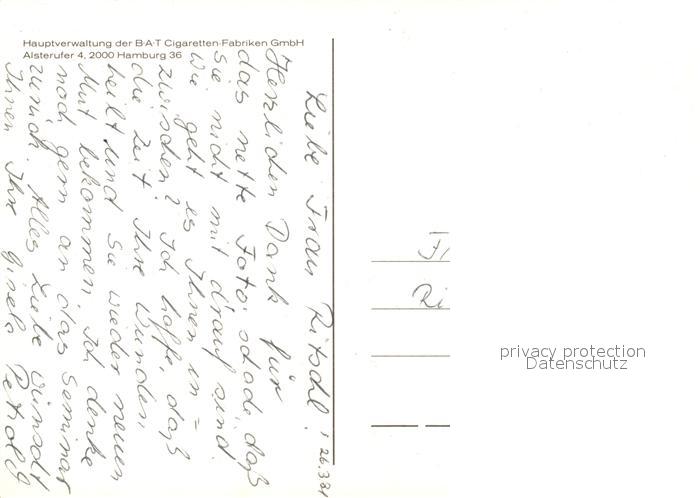 Hauptverwaltung der B·A·T Cigaretten-Fabriken GmbH
Alsterufer 4, 2000 Hamburg 36
26.3.81
Liebe Frau Ritschl!
Herzlichen Dank für
das nette Foto, schade, daß
Sie nicht mit drauf sind.
Wie geht es Ihnen in=
zwischen? Ich hoffe, daß
die Zeit Ihre Wunden
heilt und Sie wieder neuen
Mut bekommen. Ich denke
noch gern an das Seminar
zurück. Alles Liebe wünscht
Ihnen Ihre Gisela
Fr
Ri
privacy protection
Datenschutz